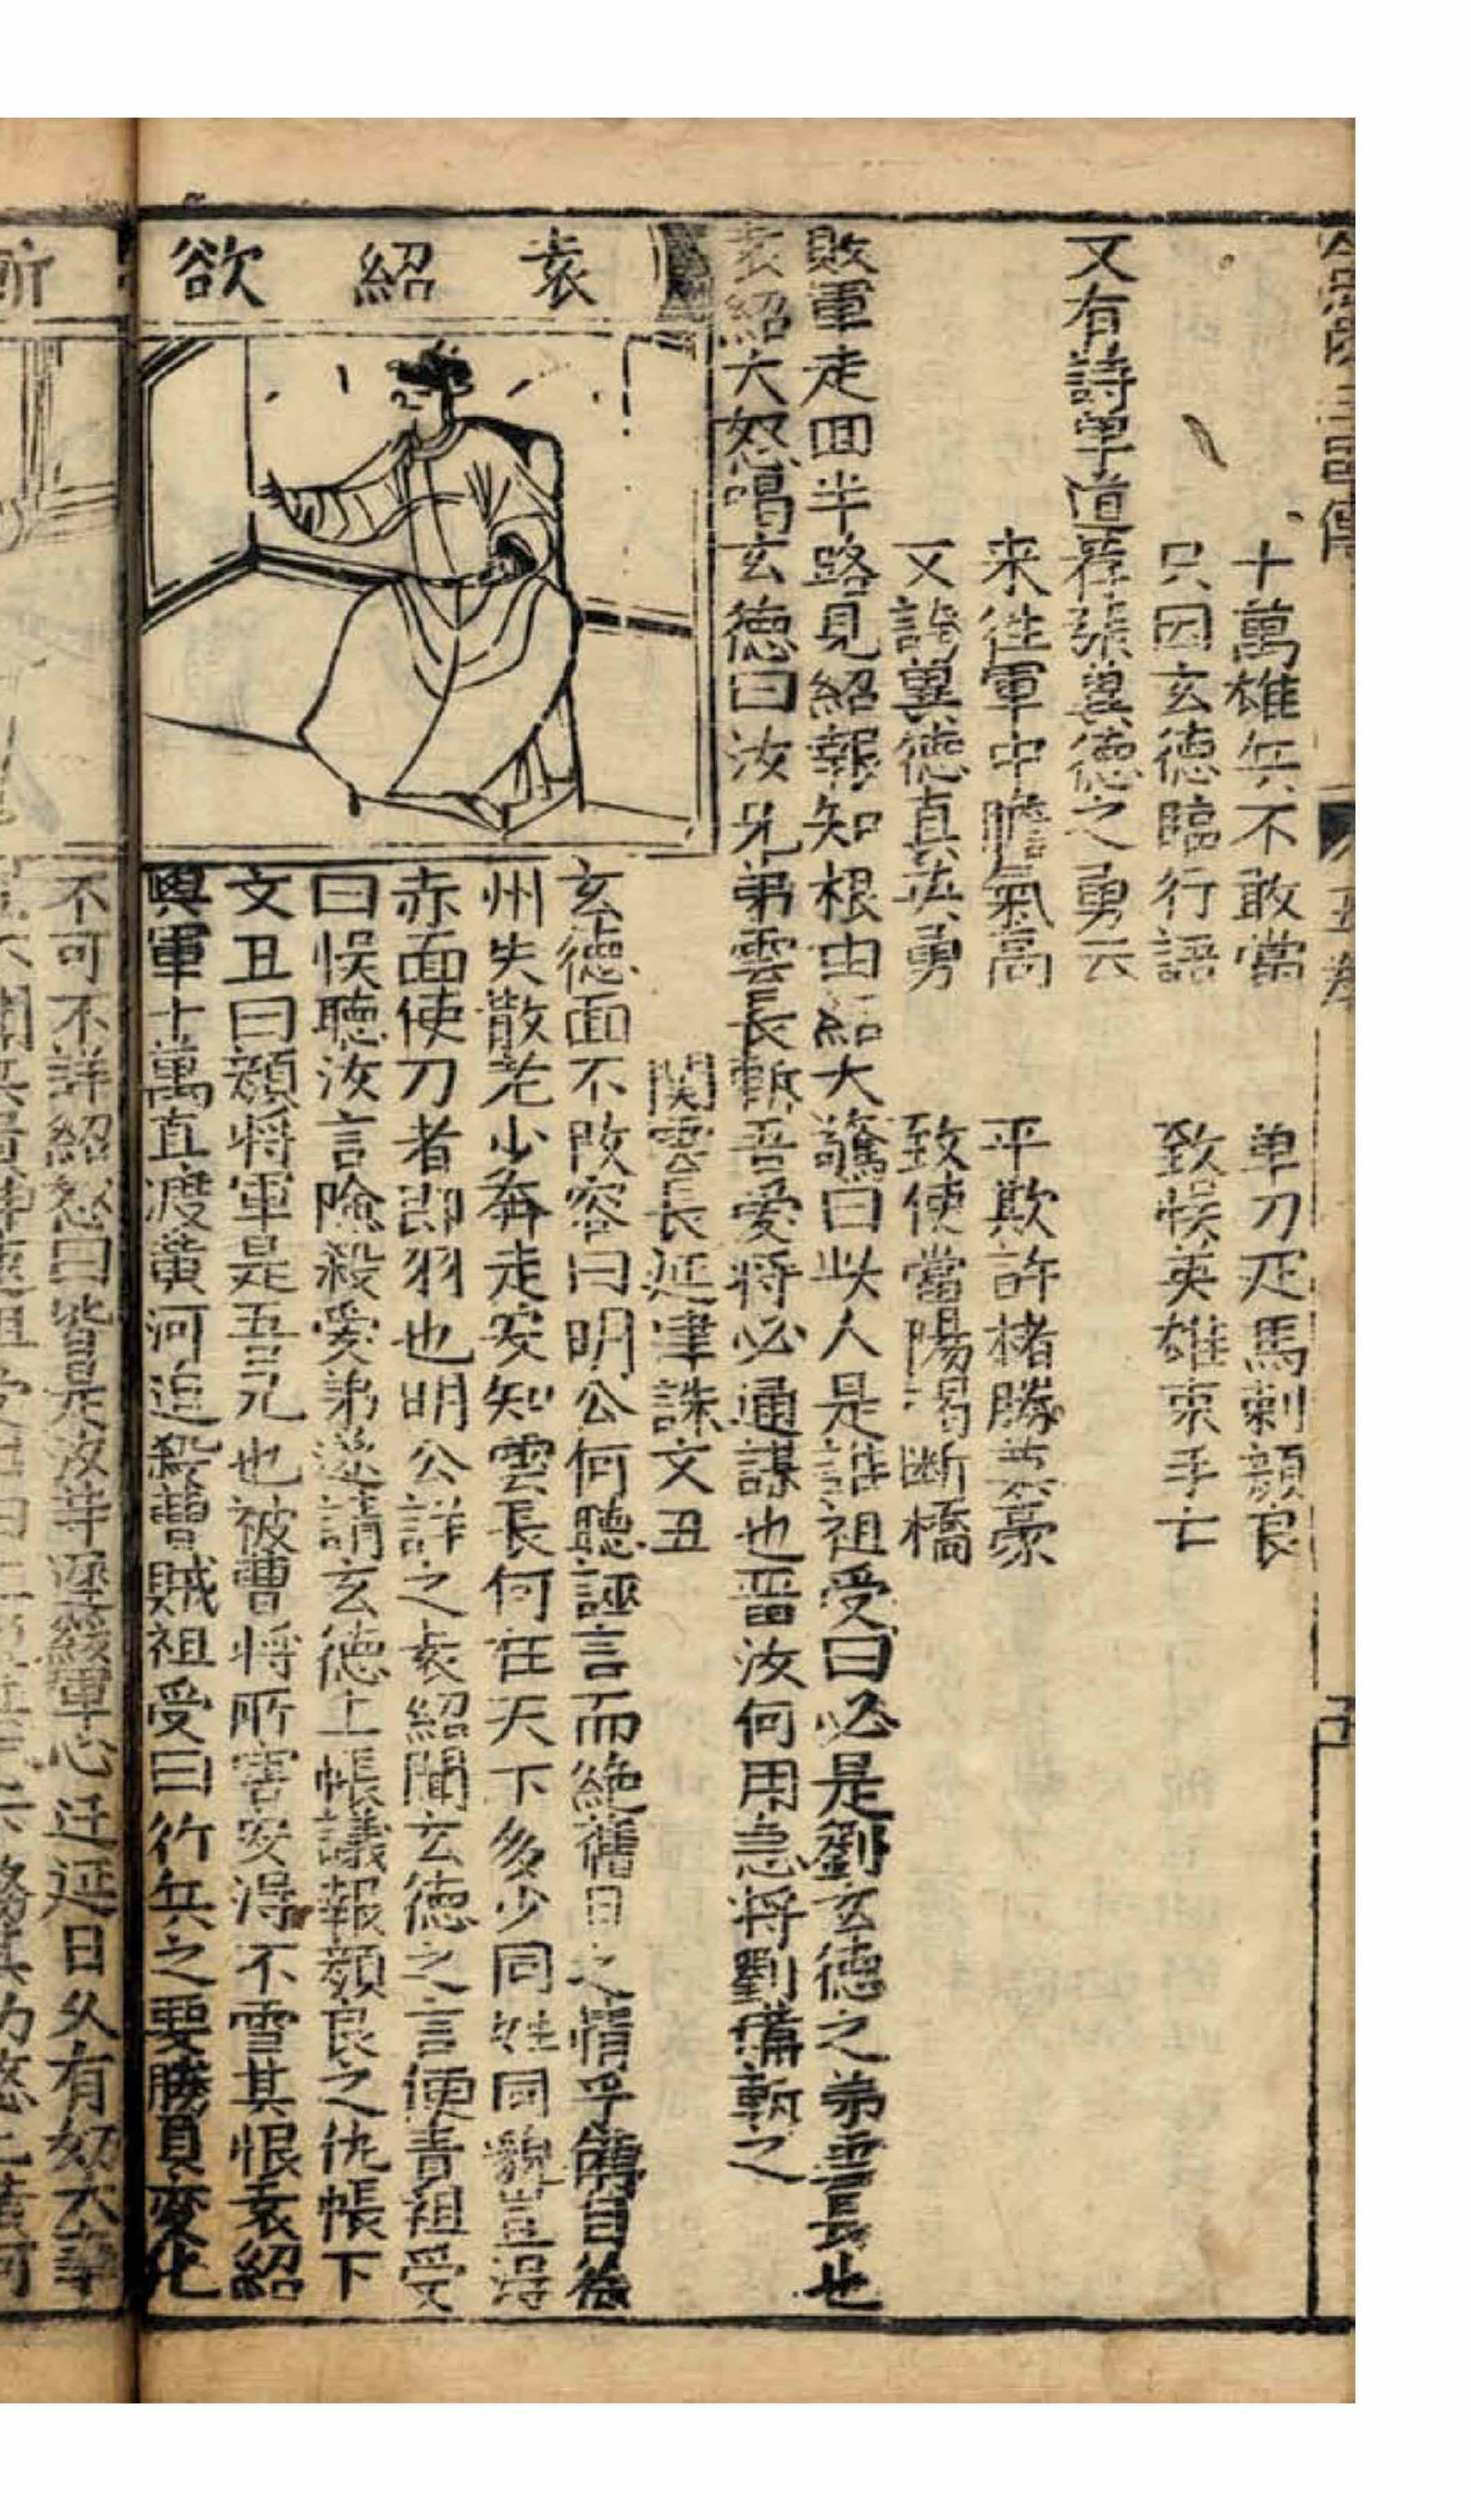 十萬雄兵不敢當　单刀疋馬刺顔良
只因玄德臨行語　致悮英雄束手亡
又有詩单道荐張翼德之勇云
来徃軍中膽氣高　平欺許褚勝曹豪
又誇翼德真英勇　致使當陽喝断橋
敗軍走回半路見紹報知根由紹大驚曰此人是誰祖受曰必是劉玄德之弟雲長也
袁紹大怒喝玄德曰汝兄弟雲長斬吾愛将必通謀也畱汝何用急将劉備斬之
関雲長延津誅文丑
袁紹欲
玄德面不改容曰明公何聽誣言而絶舊日之情乎備自徐
州失散老少奔走安知雲長何在天下多少同姓同貌豈淂
赤面使刀者即羽也明公詳之袁紹聞玄德之言便責祖受
曰悮聽汝言險殺愛弟遂請玄德上帳議報顔良之仇帳下
文丑曰顔将軍是吾兄也被曹将所害安淂不雪其恨袁紹
與軍十萬直渡黃河追殺曹賊祖受曰行兵之要勝負変化
不可不詳紹怒曰皆是汝等遅緩軍心迁延日久有妨大事